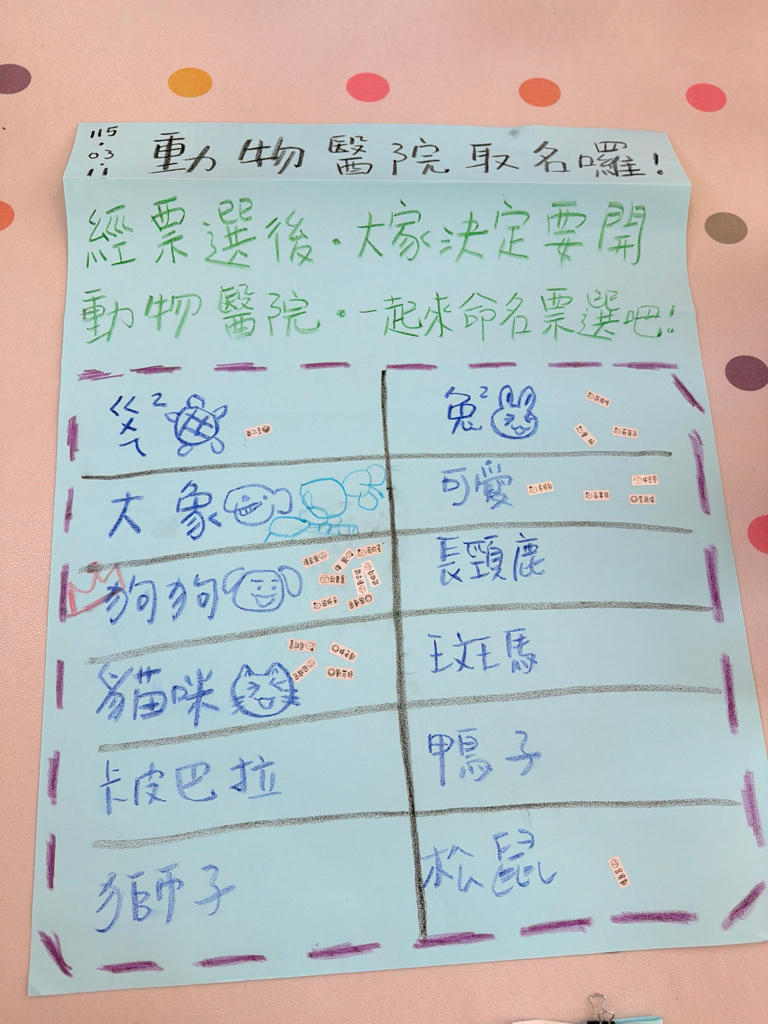 115.03.11
動物醫院取名囉!
經票選後.大家決定要開
動物醫院.一起來命名票選吧!
ㄍㄨㄟ2
兔2
大象
可愛
狗狗
長頸鹿
貓咪
斑馬
卡皮巴拉
鴨子
獅子
松鼠